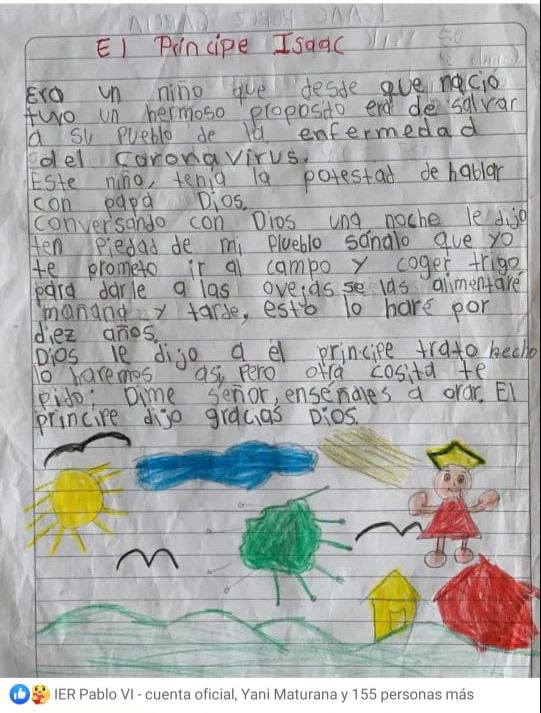 El Príncipe Isaac
Era un niño que desde que nacio
tuvo un hermoso proposito era de salvar
a su pueblo de la enfermedad
del Coronavirus.
Este niño, tenia la potestad de hablar
con papá Dios.
Conversando con Dios una noche le dijo
ten piedad de mi Plueblo sánalo que yo
te prometo ir al campo y coger trigo
para darle a las ovejas se las alimentaré
mañana y tarde, esto lo haré por
diez años.
Dios le dijo a él principe trato hecho
lo haremos así, Pero otra cosita te
pido: Dime Señor, enseñales a orar. El
principe dijo gracias Dios.
IER Pablo VI - cuenta oficial, Yani Maturana y 155 personas más